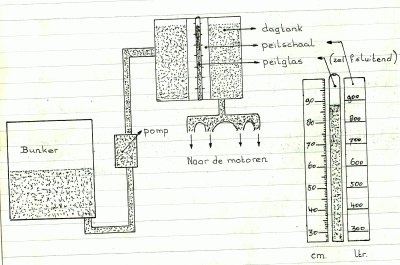 dagtank
peilschaal
peilglas (zelfsluitend)
pomp
Bunker
Naar de motoren
90
80
70
60
50
40
30
900
800
700
600
500
400
300
cm.
ltr.